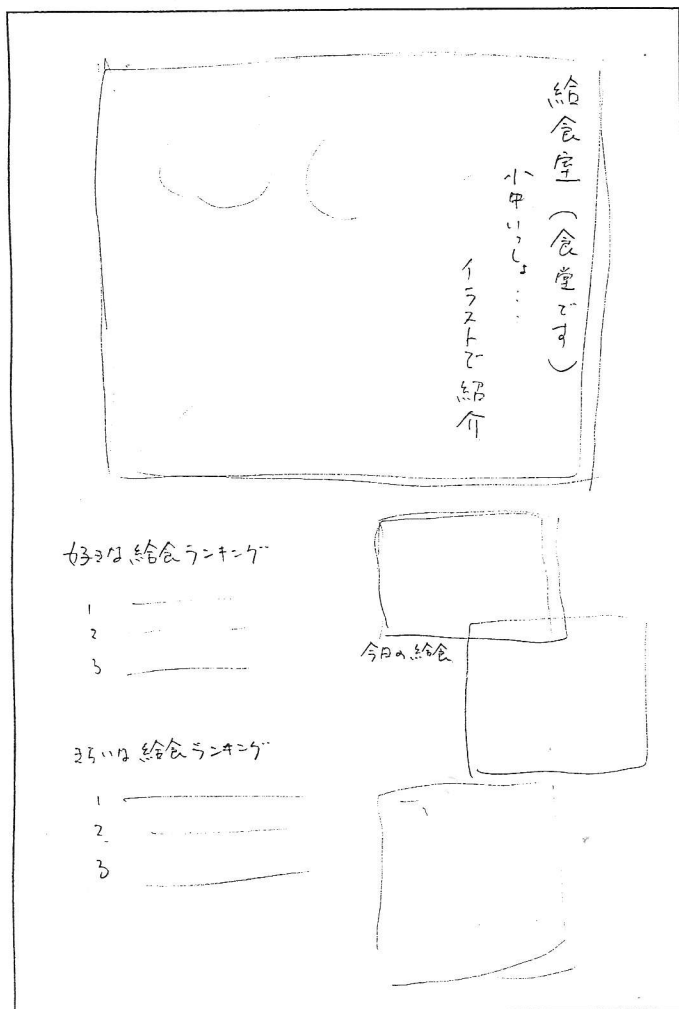 給食室(食堂です)
小中いっしょ・・・
イラストで紹介
好きな給食ランキング
1
2
3
今日の給食
きらいな給食ランキング
1
2
3